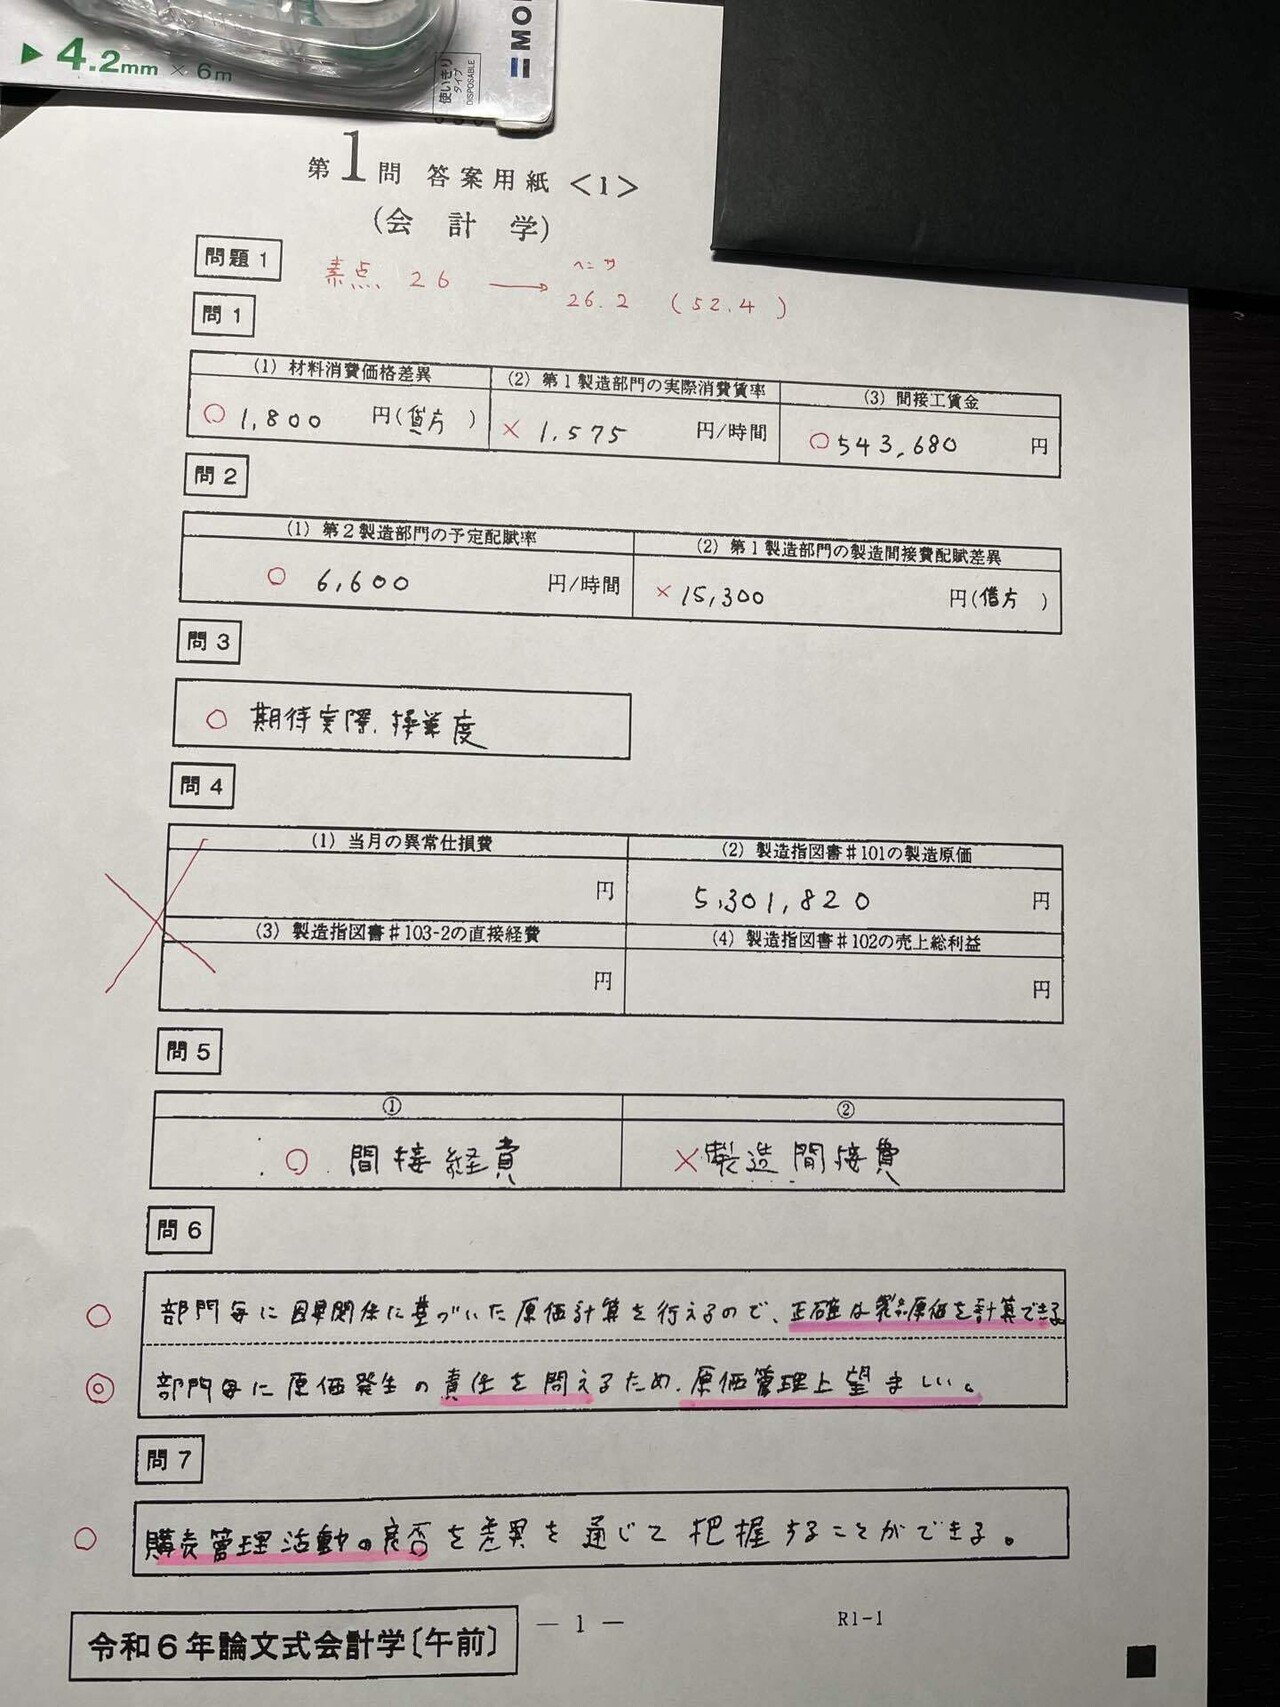 ▶ 4.2mm × 6m
使いきり
タイプ
DISPOSABLE
MO
第1問 答案用紙<1>
(会計学)
問題1
素点 26 → 26.2 (52.4)
問1
(1) 材料消費価格差異
(2) 第1製造部門の実際消費賃率
(3) 間接工賃金
○ 1,800 円(借方)
× 1,575 円/時間
○ 543,680 円
問2
(1) 第2製造部門の予定配賦率
(2) 第1製造部門の製造間接費配賦差異
○ 6,600 円/時間
× 15,300 円(借方)
問3
○ 期待実際操業度
問4
(1) 当月の異常仕損費
(2) 製造指図書#101の製造原価
円
5,301,820 円
(3) 製造指図書#103-2の直接経費
(4) 製造指図書#102の売上総利益
円
円
問5
①
②
○ 間接経費
× 製造間接費
問6
○ 部門毎に因果関係に基づいた原価計算を行えるので、正確な製品原価を計算できる
◎ 部門毎に原価発生の責任を問えるため、原価管理上望ましい。
問7
○ 購売管理活動の良否を差異を通じて把握することができる。
― 1 ―
R1-1
令和6年論文式会計学〔午前〕